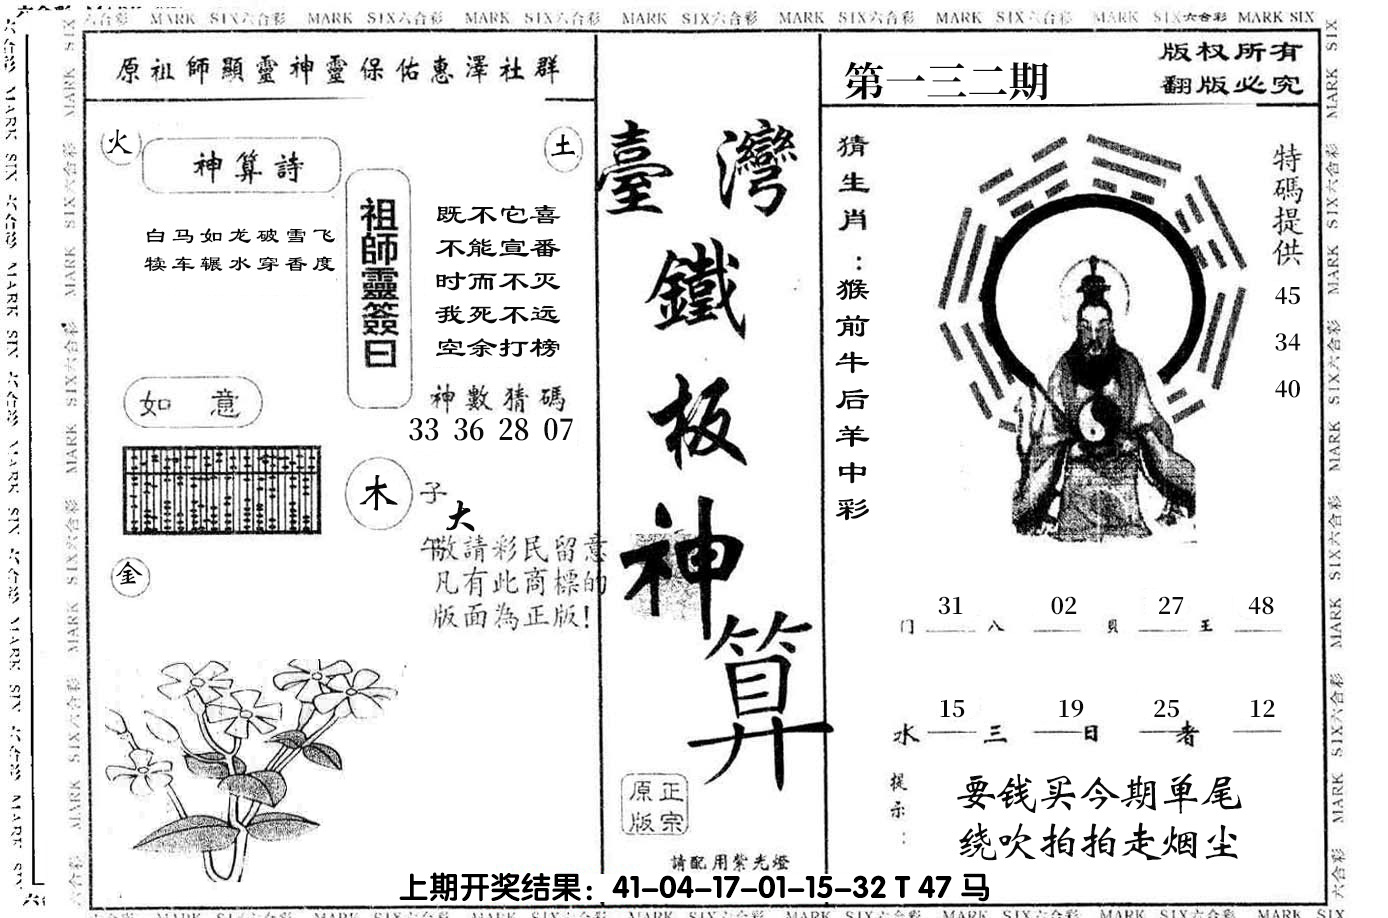 六合彩 MARK SIX六合彩 MARK SIX六合彩 MARK SIX六合彩 MARK SIX六合彩 MARK SIX六合彩 MARK SIX六合彩 MARK SIX六合彩 MARK SIX
原祖師顯靈神靈保佑惠澤社群
火
神算詩
土
白马如龙破雪飞
犊车辗水穿香度
祖師靈簽曰
既不它喜
不能宣番
时而不灭
我死不远
空余打榜
如 意
神數猜碼
33 36 28 07
木
子
大
午
敬請彩民留意
凡有此商標的
版面為正版!
金
臺灣
鐵
板
神
算
原正
版宗
請配用紫光燈
第一三二期
版权所有
翻版必究
猜生肖:猴前牛后羊中彩
特碼提供
45
34
40
31 02 27 48
门 八 貝 王
15 19 25 12
水 三 日 者
提示:
要钱买今期单尾
绕吹拍拍走烟尘
上期开奖结果：41-04-17-01-15-32 T 47 马